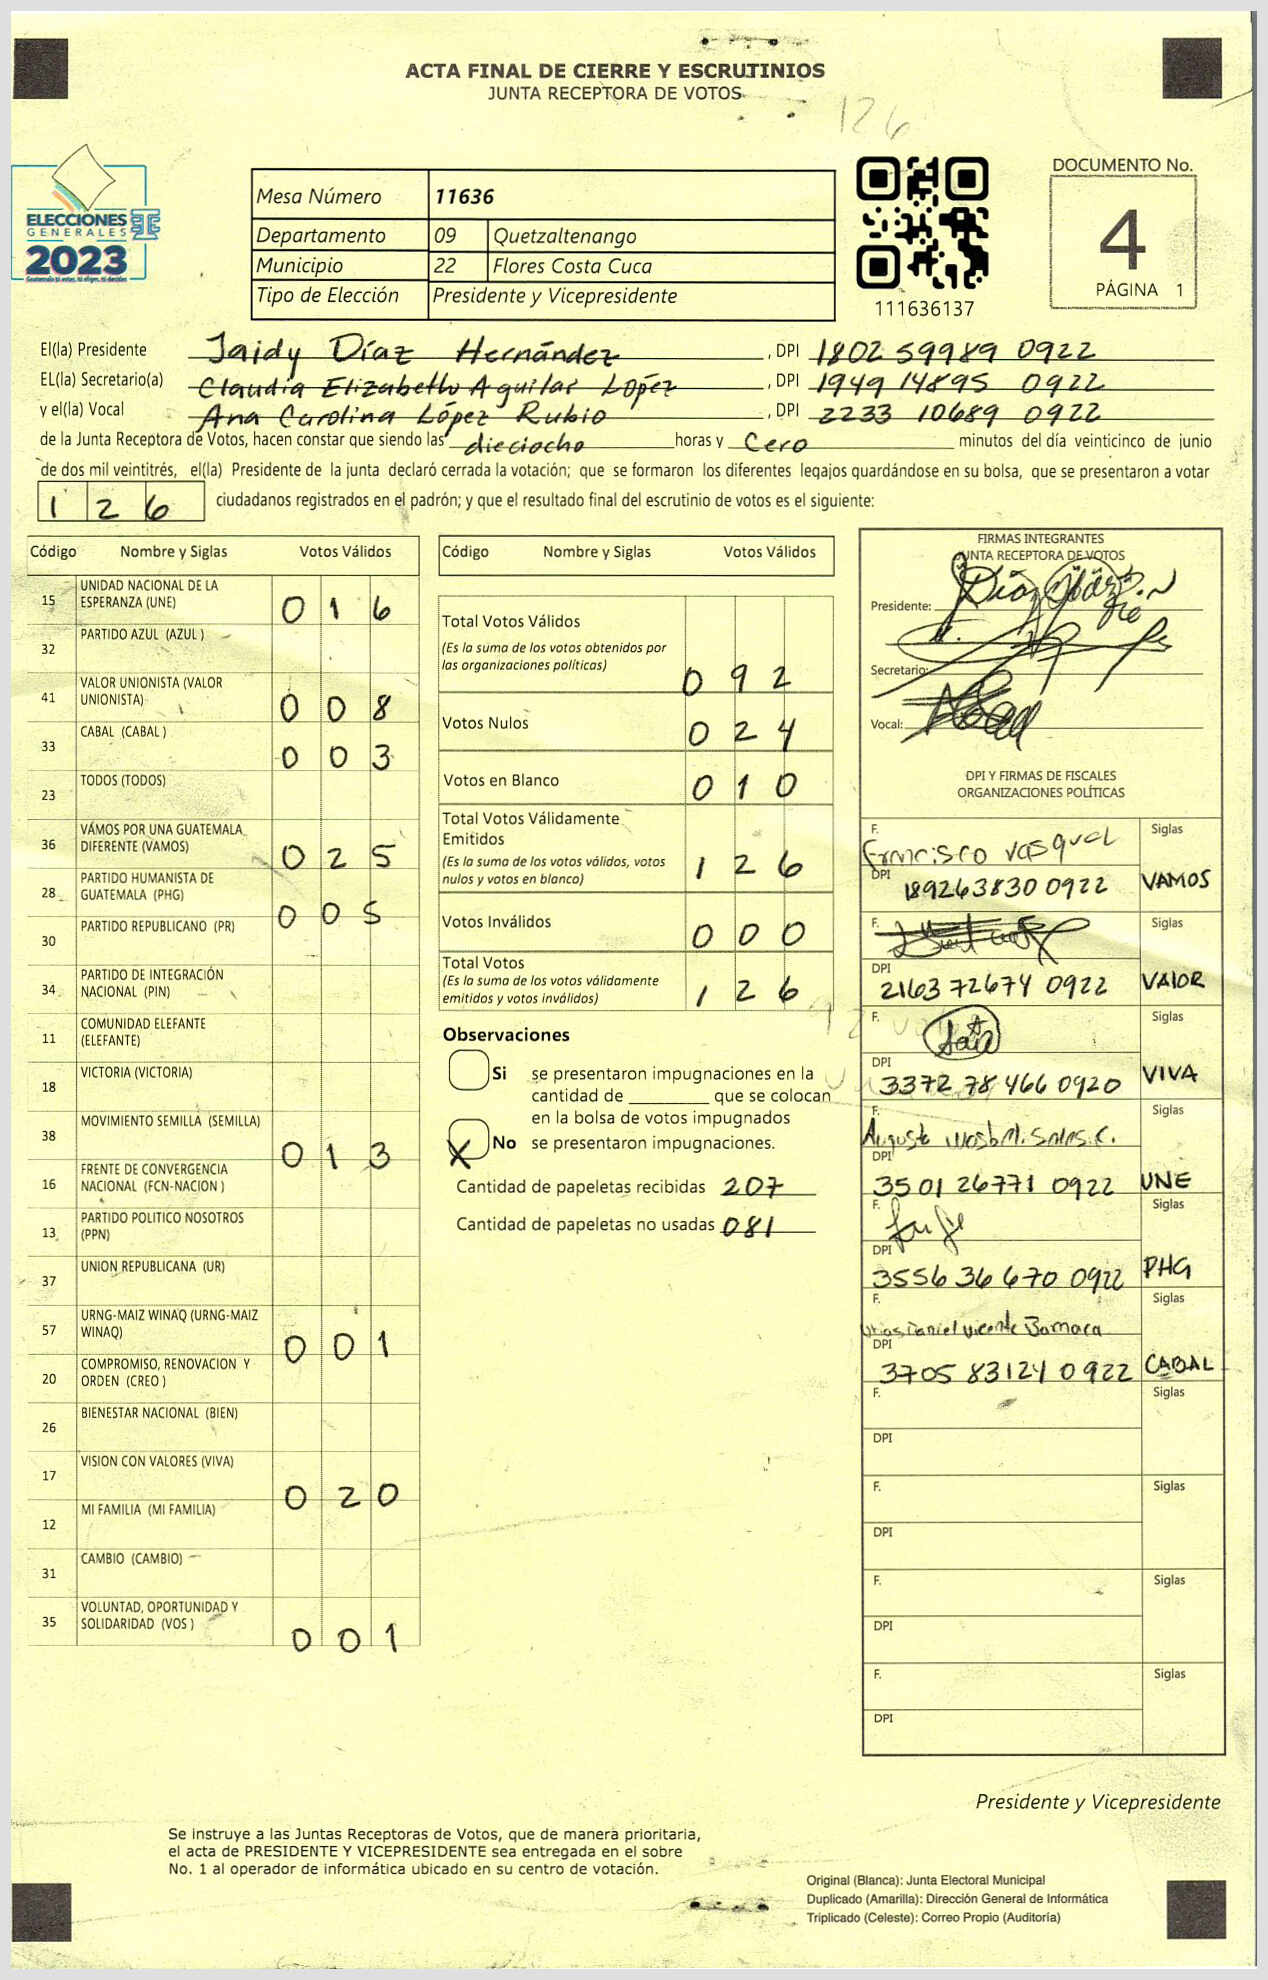 ACTA FINAL DE CIERRE Y ESCRUTINIOS
JUNTA RECEPTORA DE VOTOS
126
ELECCIONES
GENERALES
2023
Mesa Número 11636
Departamento 09 Quetzaltenango
Municipio 22 Flores Costa Cuca
Tipo de Elección Presidente y Vicepresidente
111636137
DOCUMENTO No.
4
PÁGINA 1
El(la) Presidente Jaidy Díaz Hernández , DPI 1802 59989 0922
EL(la) Secretario(a) Claudia Elizabeth Aguilar López , DPI 1949 14895 0922
y el(la) Vocal Ana Carolina López Rubio , DPI 2233 10689 0922
de la Junta Receptora de Votos, hacen constar que siendo las dieciocho horas y Cero minutos del día veinticinco de junio
de dos mil veintitrés, el(la) Presidente de la junta declaró cerrada la votación; que se formaron los diferentes legajos quardándose en su bolsa, que se presentaron a votar
126 ciudadanos registrados en el padrón; y que el resultado final del escrutinio de votos es el siguiente:
Código Nombre y Siglas Votos Válidos
15 UNIDAD NACIONAL DE LA ESPERANZA (UNE) 016
32 PARTIDO AZUL (AZUL )
41 VALOR UNIONISTA (VALOR UNIONISTA) 008
33 CABAL (CABAL ) 003
23 TODOS (TODOS)
36 VAMOS POR UNA GUATEMALA DIFERENTE (VAMOS) 025
28 PARTIDO HUMANISTA DE GUATEMALA (PHG) 005
30 PARTIDO REPUBLICANO (PR)
34 PARTIDO DE INTEGRACIÓN NACIONAL (PIN)
11 COMUNIDAD ELEFANTE (ELEFANTE)
18 VICTORIA (VICTORIA)
38 MOVIMIENTO SEMILLA (SEMILLA) 013
16 FRENTE DE CONVERGENCIA NACIONAL (FCN-NACION )
13 PARTIDO POLITICO NOSOTROS (PPN)
37 UNION REPUBLICANA (UR)
57 URNG-MAIZ WINAQ (URNG-MAIZ WINAQ) 001
20 COMPROMISO, RENOVACION Y ORDEN (CREO )
26 BIENESTAR NACIONAL (BIEN)
17 VISION CON VALORES (VIVA) 020
12 MI FAMILIA (MI FAMILIA)
31 CAMBIO (CAMBIO)
35 VOLUNTAD, OPORTUNIDAD Y SOLIDARIDAD (VOS ) 001
Código Nombre y Siglas Votos Válidos
Total Votos Válidos
(Es la suma de los votos obtenidos por
las organizaciones políticas) 092
Votos Nulos 024
Votos en Blanco 010
Total Votos Válidamente
Emitidos
(Es la suma de los votos válidos, votos
nulos y votos en blanco) 126
Votos Inválidos 000
Total Votos
(Es la suma de los votos válidamente
emitidos y votos inválidos) 126
Observaciones
Si se presentaron impugnaciones en la
cantidad de ________ que se colocan
en la bolsa de votos impugnados
X No se presentaron impugnaciones.
Cantidad de papeletas recibidas 207
Cantidad de papeletas no usadas 081
FIRMAS INTEGRANTES
JUNTA RECEPTORA DE VOTOS
Presidente:
Secretario:
Vocal:
DPI Y FIRMAS DE FISCALES
ORGANIZACIONES POLÍTICAS
F. Francisco Vasquel Siglas
DPI 189263830 0922 VAMOS
F. Siglas
DPI 2163 72674 0922 VALOR
F. Siglas
DPI 3372 78 466 0920 VIVA
F. Augusto Siglas
DPI 3501 26771 0922 UNE
F. Siglas
DPI 3556 36 670 0922 PHG
F. Daniel Vicente Bamaca Siglas
DPI 3705 83124 0922 CABAL
F. Siglas
DPI
F. Siglas
DPI
F. Siglas
DPI
F. Siglas
DPI
Presidente y Vicepresidente
Se instruye a las Juntas Receptoras de Votos, que de manera prioritaria,
el acta de PRESIDENTE Y VICEPRESIDENTE sea entregada en el sobre
No. 1 al operador de informática ubicado en su centro de votación.
Original (Blanca): Junta Electoral Municipal
Duplicado (Amarilla): Dirección General de Informática
Triplicado (Celeste): Correo Propio (Auditoría)